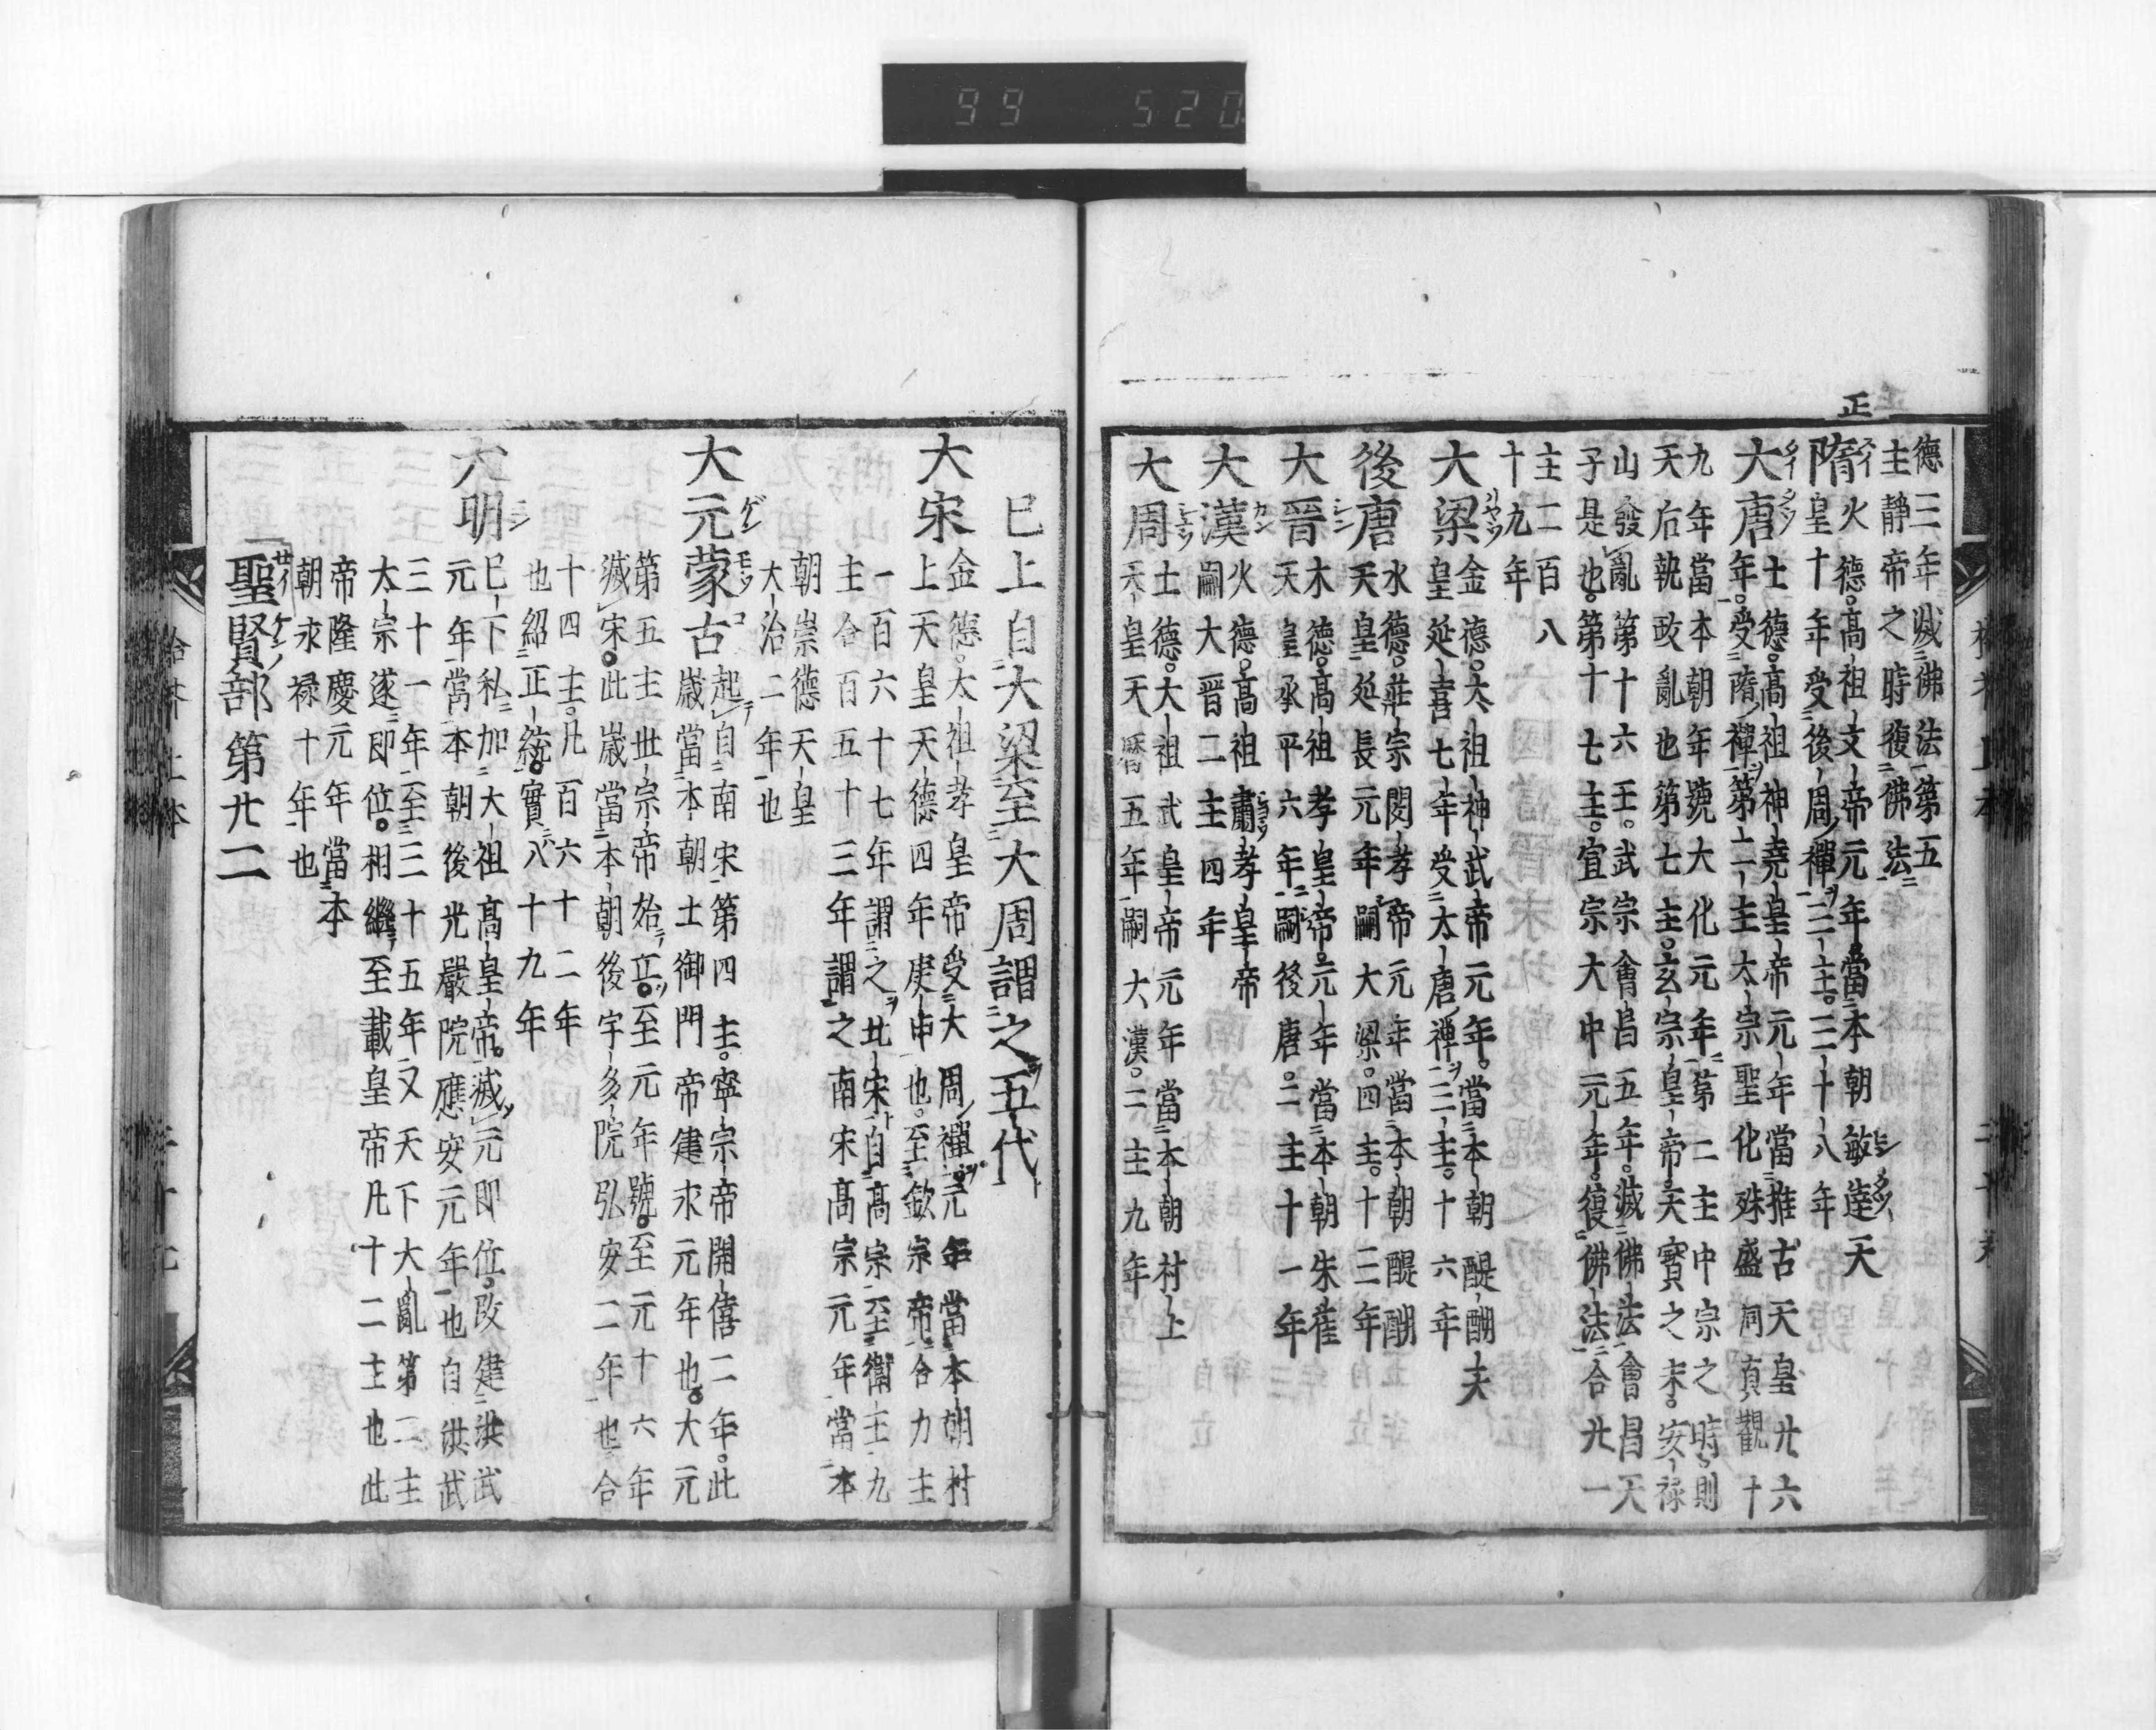 99 520
正
德三年滅佛法第五
主靜帝之時復佛法
隋火德高祖文帝元年當本朝敏達天
皇十年受後周禪三主三十八年
大唐土德高祖神堯皇帝元年當推古天皇廿六
年受隋禪第二主太宗聖化殊盛洞貞觀十
九年當本朝年號大化元年第二主中宗之時則
天右執政亂也第七主玄宗皇帝天寶之末安祿
山發亂第十六王武宗會昌五年滅佛法會昌天
子是也第十七主宜宗大中元年復佛法合廿一
主二百八
十九年
大梁金德太祖神武帝元年當本朝醍醐天
皇延喜七年受太唐禅二主十六年
後唐水德莊宗閔孝帝元年當本朝醍醐
天皇延長元年嗣大梁四主十三年
大晉木德高祖孝皇帝元年當本朝朱雀
天皇承平六年嗣後唐二主十一年
大漢火德高祖肅孝皇帝
嗣大晉二主四年
大周土德大祖武皇帝元年當本朝村上
天皇天曆五年嗣大漢二主九年
巳上自大梁至大周謂之五代
大宋金德太祖孝皇帝受大周禪元年當本朝村
上天皇天德四年庚申也至欽宗帝合力主
一百六十七年謂之北宋自高宗至衛主九
主合百五十三年謂之南宋高宗元年當本
朝崇德天皇
大治二年也
大元蒙古起自南宋第四主寧宗帝開僖二年此
歲當本朝土御門帝建永元年也大元
第五主世宗帝始立至元年號至元十六年
滅宋此歲當本朝後宇多院弘安二年也合
十四主凡百六十二年
也紹正統實八十九年
大明巳下私加大祖高皇帝滅元即位改建洪武
元年當本朝後光嚴院應安元年也自洪武
三十一年至三十五年又天下大亂第二主
太宗遂即位相繼至載皇帝凡十二主也此
帝隆慶元年當本
朝永禄十年也
聖賢部第廿二